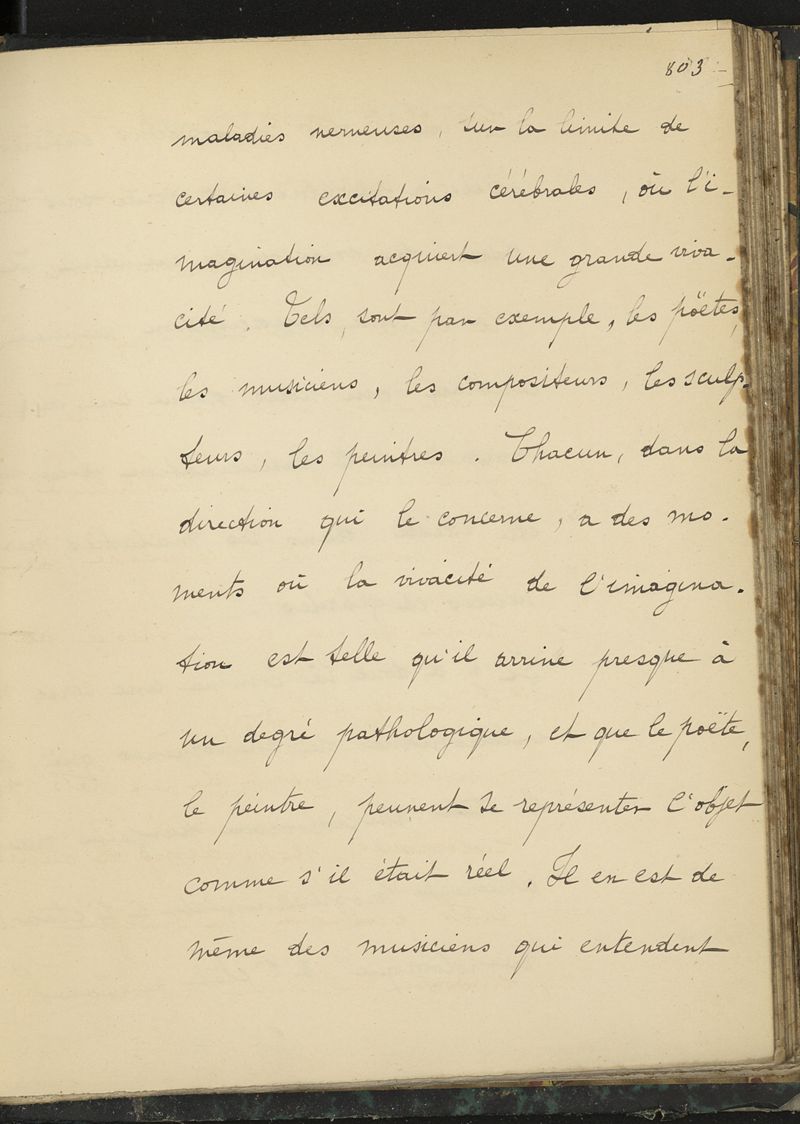 803
maladies nerveuses, sur la limite de
certaines excitations cérébrales, où l'i-
magination acquiert une grande viva-
cité. Tels, sont par exemple, les poëtes,
les musiciens, les compositeurs, les sculp-
teurs, les peintres. Chacun, dans la
direction qui le concerne, a des mo-
ments où la vivacité de l'imagina-
tion est telle qu'il arrive presque à
un degré pathologique, et que le poëte,
le peintre, peuvent se représenter l'objet
comme s'il était réel. Il en est de
même des musiciens qui entendent